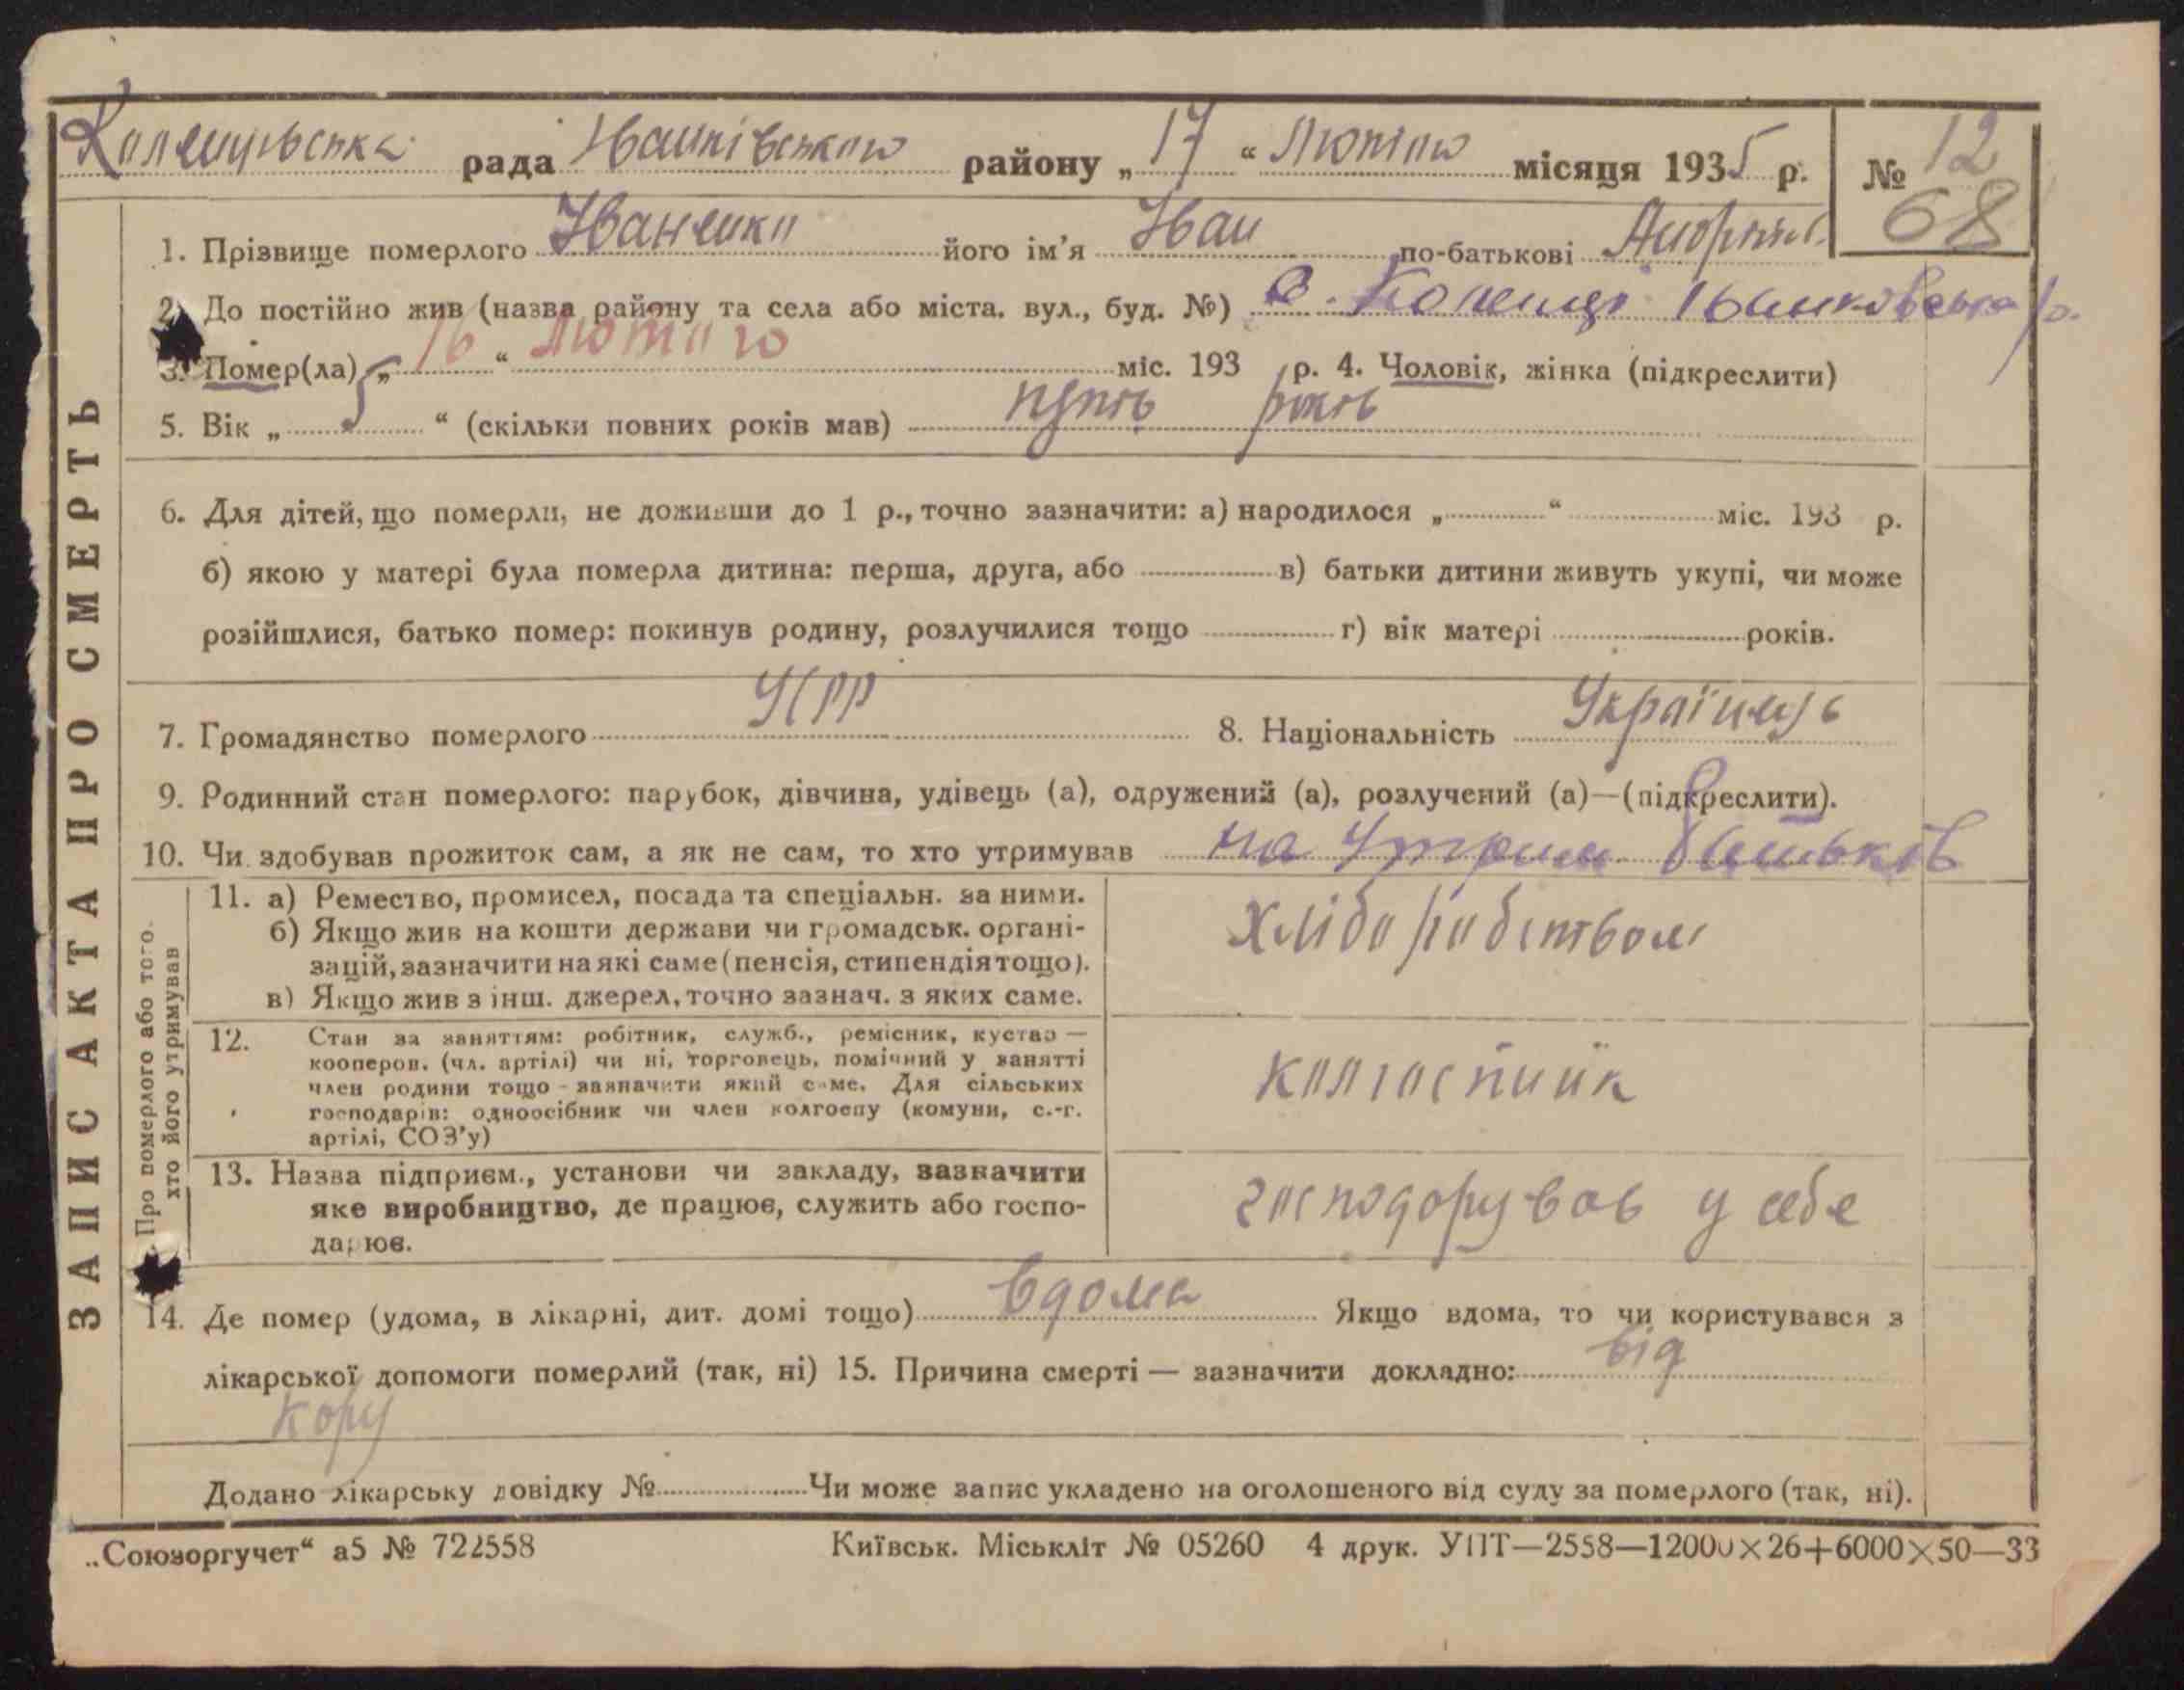 рада Іванківського району „17“ Лютого місяця 1935 р. № 12
68
1. Прізвище померлого Іваненко його ім'я Іван по-батькові
2. До постійно жив (назва району та села або міста. вул., буд. №) с. р.
3. Помер(ла) „16“ Лютого міс. 193 р. 4. Чоловік, жінка (підкреслити)
5. Вік „5“ (скільки повних років мав) пять років
6. Для дітей, що померли, не доживши до 1 р., точно зазначити: а) народилося „ “ міс. 193 р.
б) якою у матері була померла дитина: перша, друга, або в) батьки дитини живуть укупі, чи може
розійшлися, батько помер: покинув родину, розлучилися тощо г) вік матері років.
7. Громадянство померлого УСРР 8. Національність Українець
9. Родинний стан померлого: парубок, дівчина, удівець (а), одружений (а), розлучений (а)—(підкреслити).
10. Чи здобував прожиток сам, а як не сам, то хто утримував на утрим батьків
ЗАПИС АКТА ПРО СМЕРТЬ
Про померлого або того.
хто його утримував
11. а) Ремество, промисел, посада та спеціальн. за ними.
б) Якщо жив на кошти держави чи громадськ. органі-
зацій, зазначити на які саме (пенсія, стипендія тощо).
в) Якщо жив з інш. джерел, точно зазнач. з яких саме.
хліборобством
12. Стан за заняттям: робітник, служб., ремісник, кустар —
кооперов. (чл. артілі) чи ні, торговець, помічний у занятті
член родини тощо - зазначити який саме. Для сільських
господарів: одноосібник чи член колгоспу (комуни, с.-г.
артілі, СОЗ'у)
колгоспник
13. Назва підприєм., установи чи закладу, зазначити
яке виробництво, де працює, служить або госпо-
дарює.
господорував у себе
14. Де помер (удома, в лікарні, дит. домі тощо) вдома Якщо вдома, то чи користувався з
лікарської допомоги померлий (так, ні) 15. Причина смерті — зазначити докладно: від
кору
Додано лікарську довідку № Чи може запис укладено на оголошеного від суду за померлого (так, ні).
„Союзоргучет“ а5 № 722558 Київськ. Міськліт № 05260 4 друк. УПТ—2558—12000×26+6000×50—33